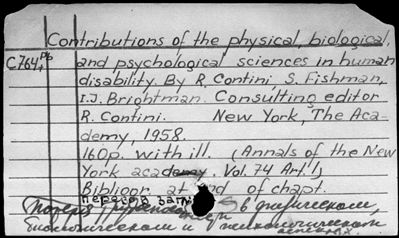 Contributions of the physical, biological,
C764, Pb and psychological sciences in human
disability. By R. Contini, S. Fishman,
I.J. Brightman. Consulting editor
R. Contini. New York, The Aca-
demy, 1958.
160p. with ill. (Annals of the New
York academy. Vol. 74 Art. 1)
Bibliogr. at end of chapt.
перев. загл.
в физическом,
биологическом и психологическом